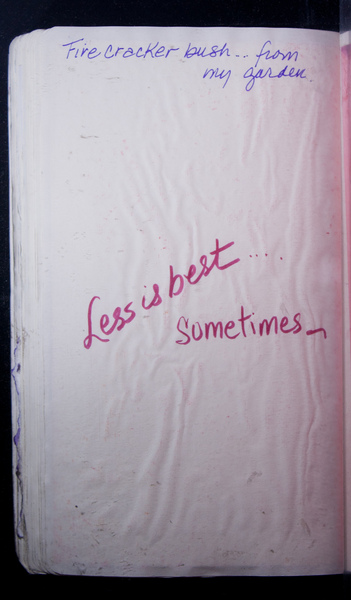 Firecracker bush... from
my garden.
Less is best ....
Sometimes